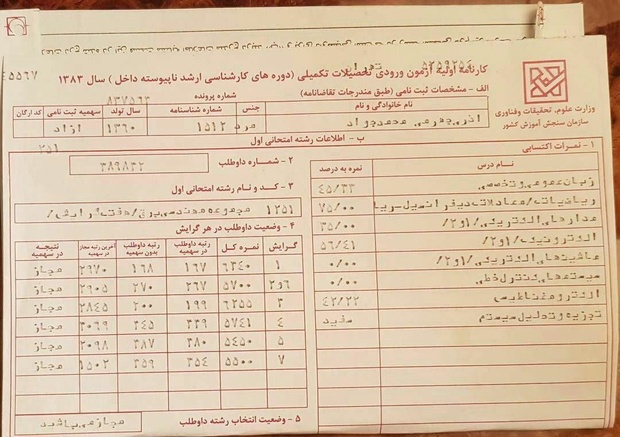 ۵۲۵۹۲۵۴
کارنامه اولیه آزمون ورودی تحصیلات تکمیلی (دوره های کارشناسی ارشد ناپیوسته داخل) سال ۱۳۸۳
وزارت علوم، تحقیقات وفناوری
سازمان سنجش آموزش کشور
الف - مشخصات ثبت نامی (طبق مندرجات تقاضانامه)
شماره پرونده
۸۳۷۵۶۳
نام خانوادگی و نام
جنس
شماره شناسنامه
سال تولد
سهمیه ثبت نامی
کد ارگان
محمدجواد
مرد
۱۵۱۲
۱۳۶۰
ازاد
ب - اطلاعات رشته امتحانی اول
۲۵۱
۱ - نمرات اکتسابی
نام درس
نمره به درصد
زبان عمومی وتخصصی
۴۵/۳۳
ریاضیات/معادلات دیفرانسیل-ریا
۷۵/۰۰
مدارهای الکتریکی/۱و۲/
۳۵/۰۰
الکترونیک/۱و۲/
۵۶/۴۱
ماشینهای الکتریکی/۱و۲/
۰/۰۰
سیستمهای کنترل خطی
۰/۰۰
الکترومغناطیس
۴۲/۲۲
تجزیه وتحلیل سیستم
سفید
۲ - شماره داوطلب
۳۸۹۸۳۲
۳ - کد و نام رشته امتحانی اول
۱۲۵۱
مجموعه مهندسی برق/هفت گرایش/
۴ - وضعیت داوطلب در هر گرایش
گرایش
نمره کل
رتبه داوطلب در سهمیه
رتبه داوطلب بدون سهمیه
آخرین رتبه مجاز در سهمیه
نتیجه در سهمیه
۱ ۶۳۴۰ ۱۶۷ ۱۶۸ ۲۹۷۰ مجاز
۲و۶ ۵۷۰۰ ۲۶۷ ۲۷۰ ۲۹۰۵ مجاز
۳ ۶۲۵۵ ۱۹۹ ۲۰۰ ۲۸۴۵ مجاز
۴ ۵۷۴۱ ۳۳۹ ۳۴۵ ۳۰۶۹ مجاز
۵ ۵۴۵۰ ۳۸۰ ۳۸۷ ۲۰۹۸ مجاز
۷ ۵۵۰۰ ۳۵۴ ۳۵۹ ۱۵۰۲ مجاز
۵ - وضعیت انتخاب رشته داوطلب
مجازمی باشید